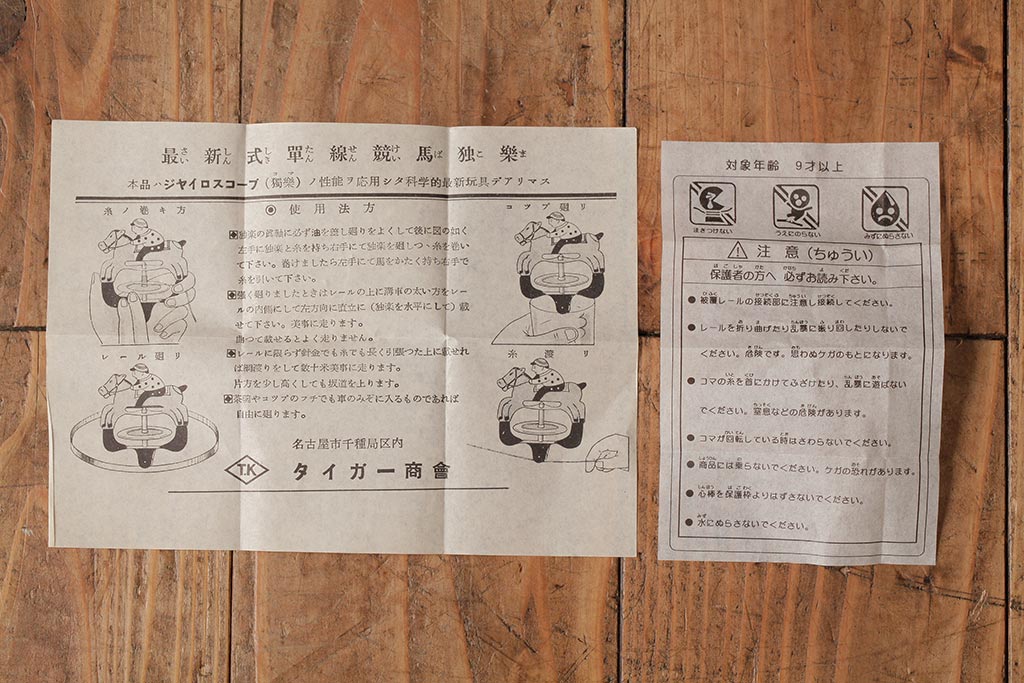 最新式單線競馬独樂
さいしんしきたんせんけいばこま
本品ハジヤイロスコープ（獨樂）ノ性能ヲ応用シタ科学的最新玩具デアリマス
コマ
糸ノ巻キ方
◉ 使用法方
コツプ廻リ
独楽の眞動に必ず油を差し廻りをよくして後に図の如く
左手に独楽と糸を持ち右手にて独楽を廻しつゝ糸を巻い
て下さい。巻けましたら左手にて馬をかたく持ち右手で
糸を引いて下さい。
強く廻りましたときはレールの上に溝車の太い方をレー
ルの内側にして左方向に直立に（独楽を水平にして）載
せて下さい。美事に走ります。
曲つて載せるとよく走りません。
レールに限らず針金でも糸でも長く引張つた上に載せれ
ば綱渡りをして数十米美事に走ります。
片方を少し高くしても坂道を上ります。
茶碗やコツプのフチでも車のみぞに入るものであれば
自由に廻ります。
レール廻リ
糸渡リ
名古屋市千種局区内
T.K タイガー商會
対象年齢 9才以上
注きつけない
うえにのらない
みずにぬらさない
⚠ 注意（ちゅうい）
保護者の方へ 必ずお読み下さい。
● 被覆レールの接続部に注意し接続してください。
● レールを折り曲げたり乱暴に振り回したりしないで
ください。危険です。思わぬケガのもとになります。
● コマの糸を首にかけてふざけたり、乱暴に遊ばない
でください。窒息などの危険があります。
● コマが回転している時はさわらないでください。
● 商品には乗らないでください。ケガの恐れがあります。
● 心棒を保護枠よりはずさないでください。
● 水にぬらさないでください。